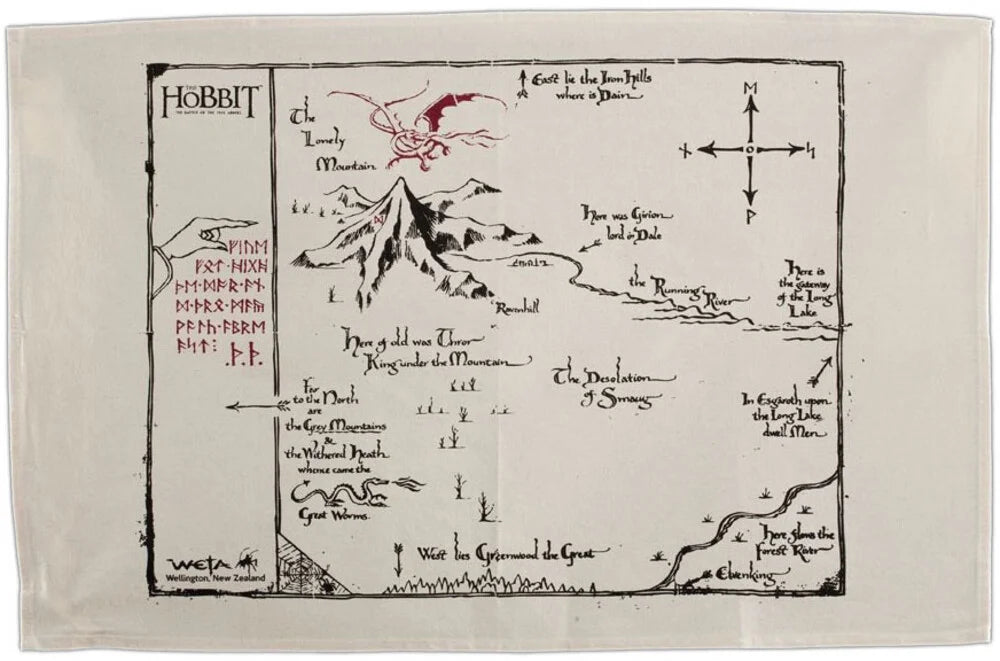 THE
HOBBIT
THE BATTLE OF THE FIVE ARMIES
The
Lonely
Mountain
East lie the Iron Hills
where is Dain
ᛖ
ᚾ
ᛋ
ᚹ
ᛞ
Here was Girion
lord in Dale
ᚠᛁᚢᛖ
ᚠᛟᛏ·ᚻᛁᚷᚻ
ᚦᛖ·ᛞᚪᚱ·ᚪᚾ
ᛞ·ᚦᚱᛟ·ᛗᚪᚣ
ᚹᚪᛚᚳ·ᚪᛒᚱᛖ
ᚪᛋᛏ:
.ᚦ.ᚦ.
the Running River
Here is
the gateway
of the Long
Lake
Ravenhill
Here of old was Thror
King under the Mountain
The Desolation
of Smaug
Far
to the North
are
the Grey Mountains
&
the Withered Heath
whence came the
Great Worms
In Esgaroth upon
the Long Lake
dwell Men
Here flows the
Forest River
Elvenking
West lies Greenwood the Great
WETA
Wellington, New Zealand